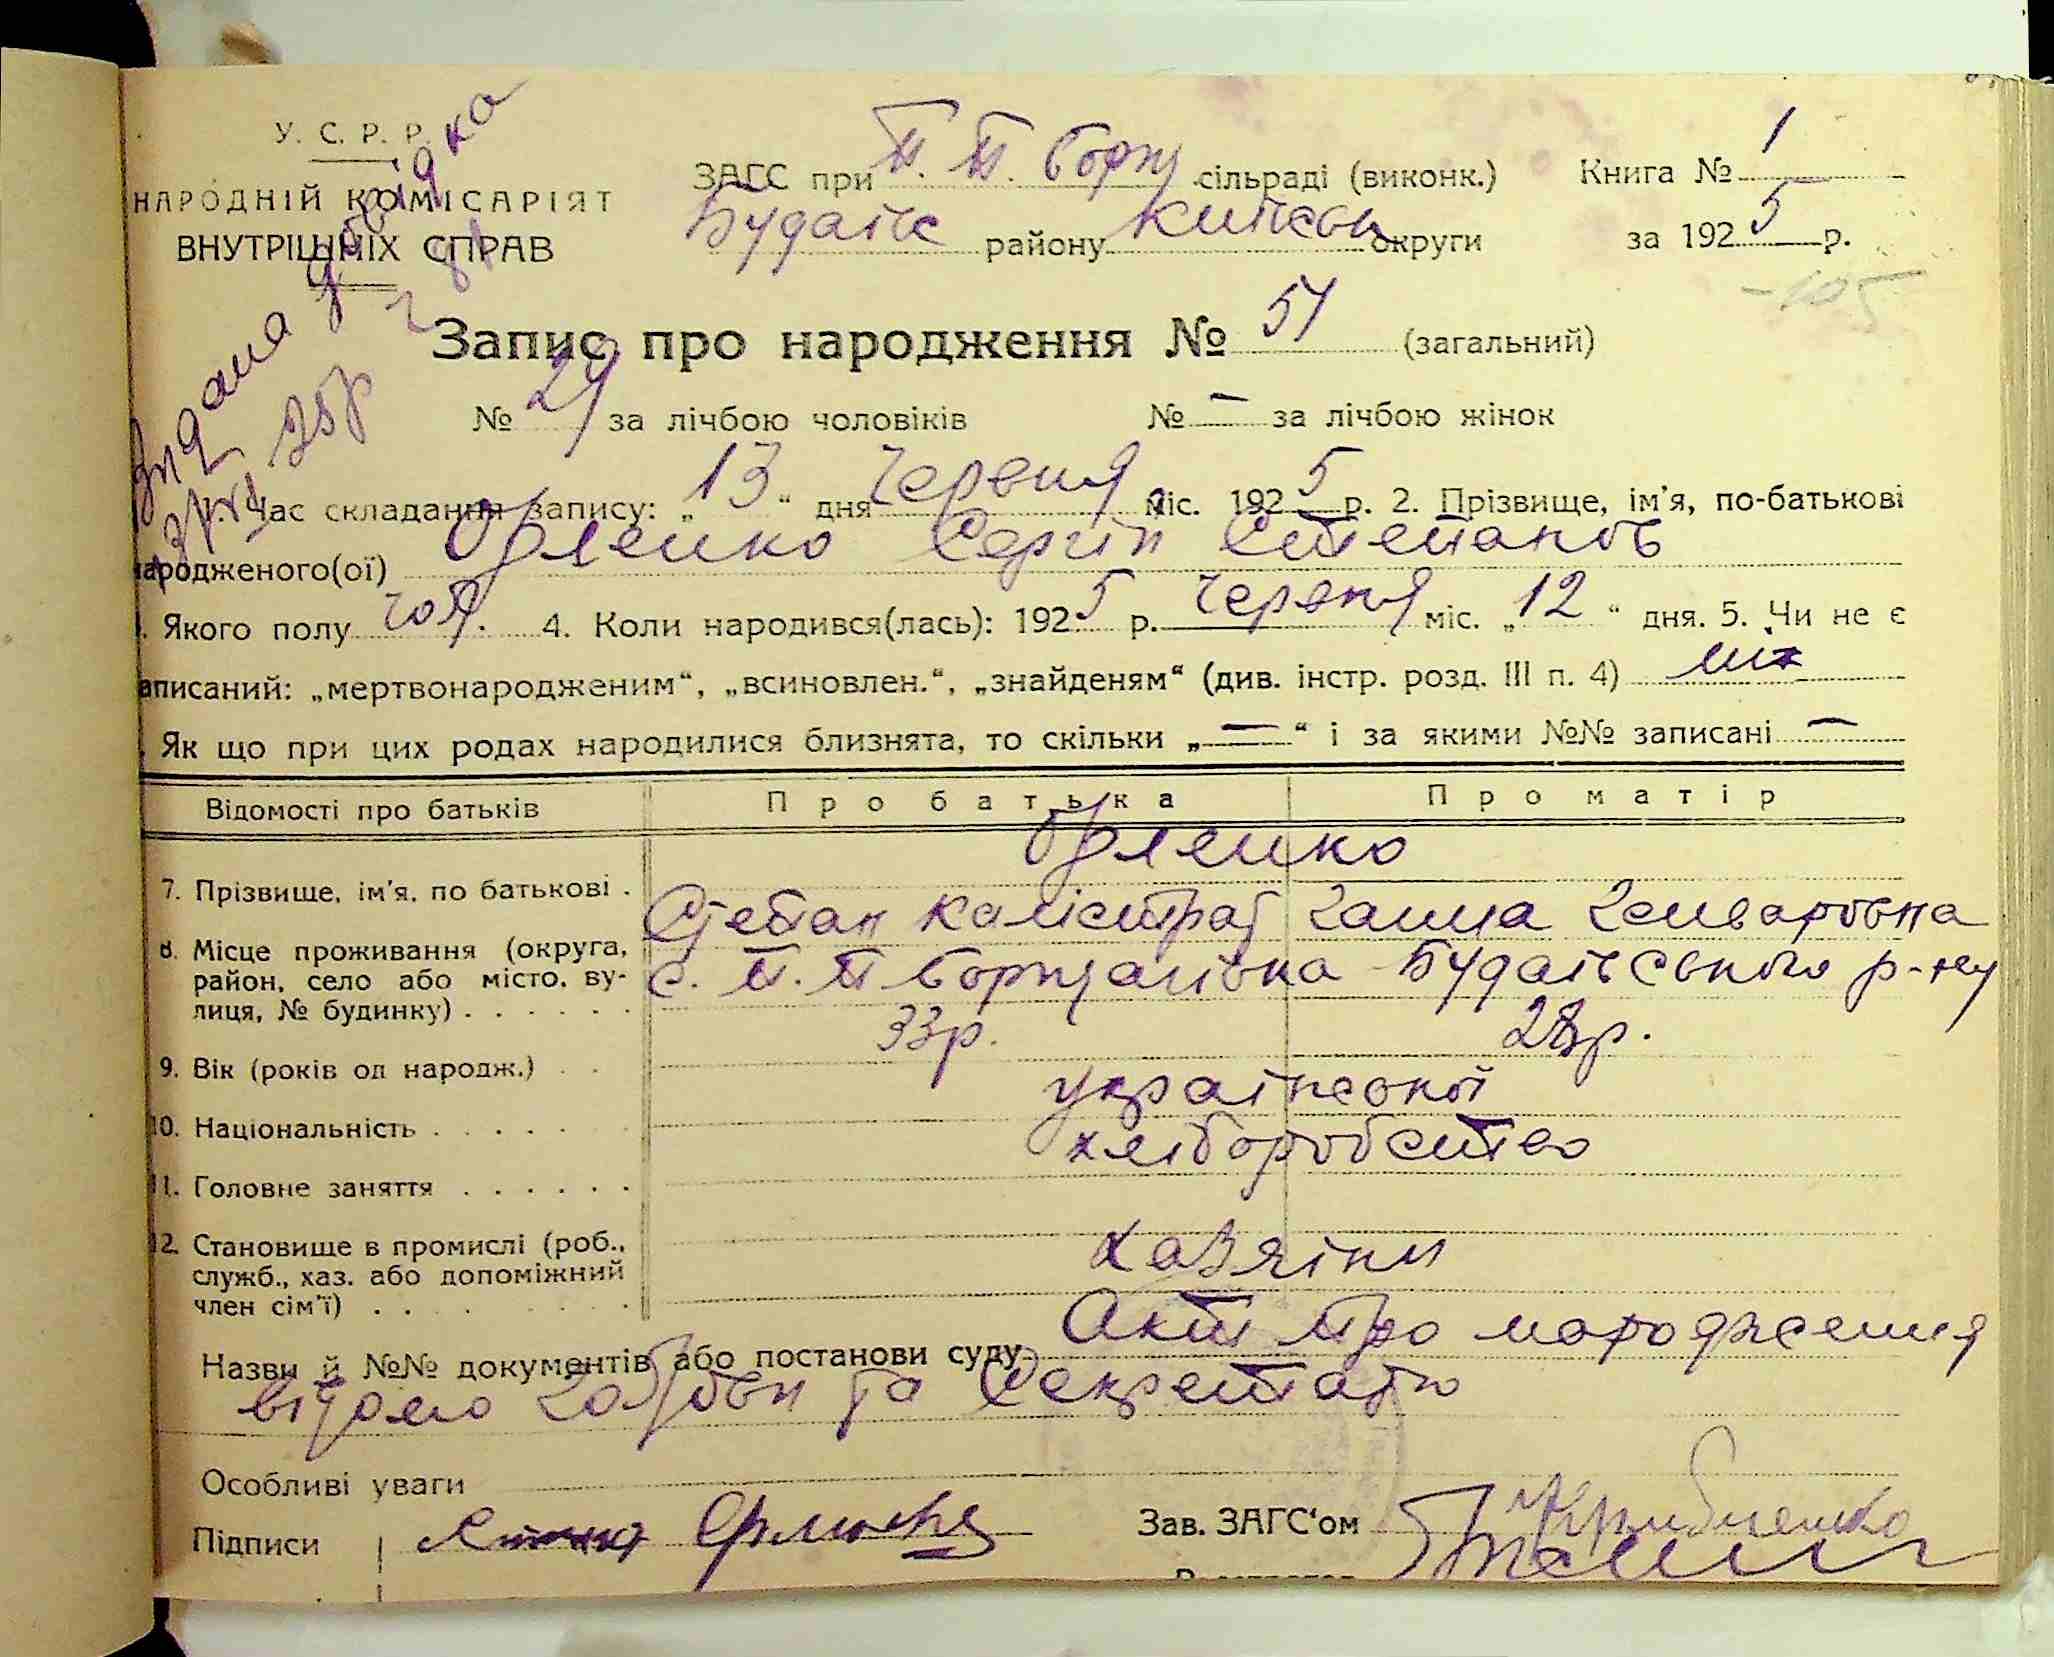 У. С. Р. Р.
НАРОДНІЙ КОМІСАРІЯТ
ВНУТРІШНІХ СПРАВ
ЗАГС при П. П. Борщ сільраді (виконк.)
Будаївс району Київськ округи
Книга № 1
за 1925 р.
-105
Видана довідка
Запис про народження № 51 (загальний)
№ 29 за лічбою чоловіків № — за лічбою жінок
Час складання запису: „13“ дня Червня міс. 1925 р. 2. Прізвище, ім'я, по-батькові
народженого(ої) Орленко Сергій Степанов
. Якого полу чол. 4. Коли народився(лась): 1925 р. Червня міс. „12“ дня. 5. Чи не є
аписаний: „мертвонародженим“, „всиновлен.“, „знайденям“ (див. інстр. розд. III п. 4)
. Як що при цих родах народилися близнята, то скільки „—“ і за якими №№ записані —
Відомості про батьків Про батька Про матір
Орленко
7. Прізвище, ім'я, по батькові . Степан Калістрат Ганна
8. Місце проживання (округа, район, село або місто, ву-
лиця, № будинку) . . . . . . с. П. П Борщагівка Будаївського р-ну
9. Вік (років од народж.) . . 33р. 28р.
10. Національність . . . . . української
11. Головне заняття . . . . . . хліборобство
12. Становище в промислі (роб.,
служб., хаз. або допоміжний
член сім'ї) . . хазяіни
Назви й №№ документів або постанови суду Акт про народження
відомо Голови та Секретаря
Особливі уваги
Підписи
Зав. ЗАГС'ом